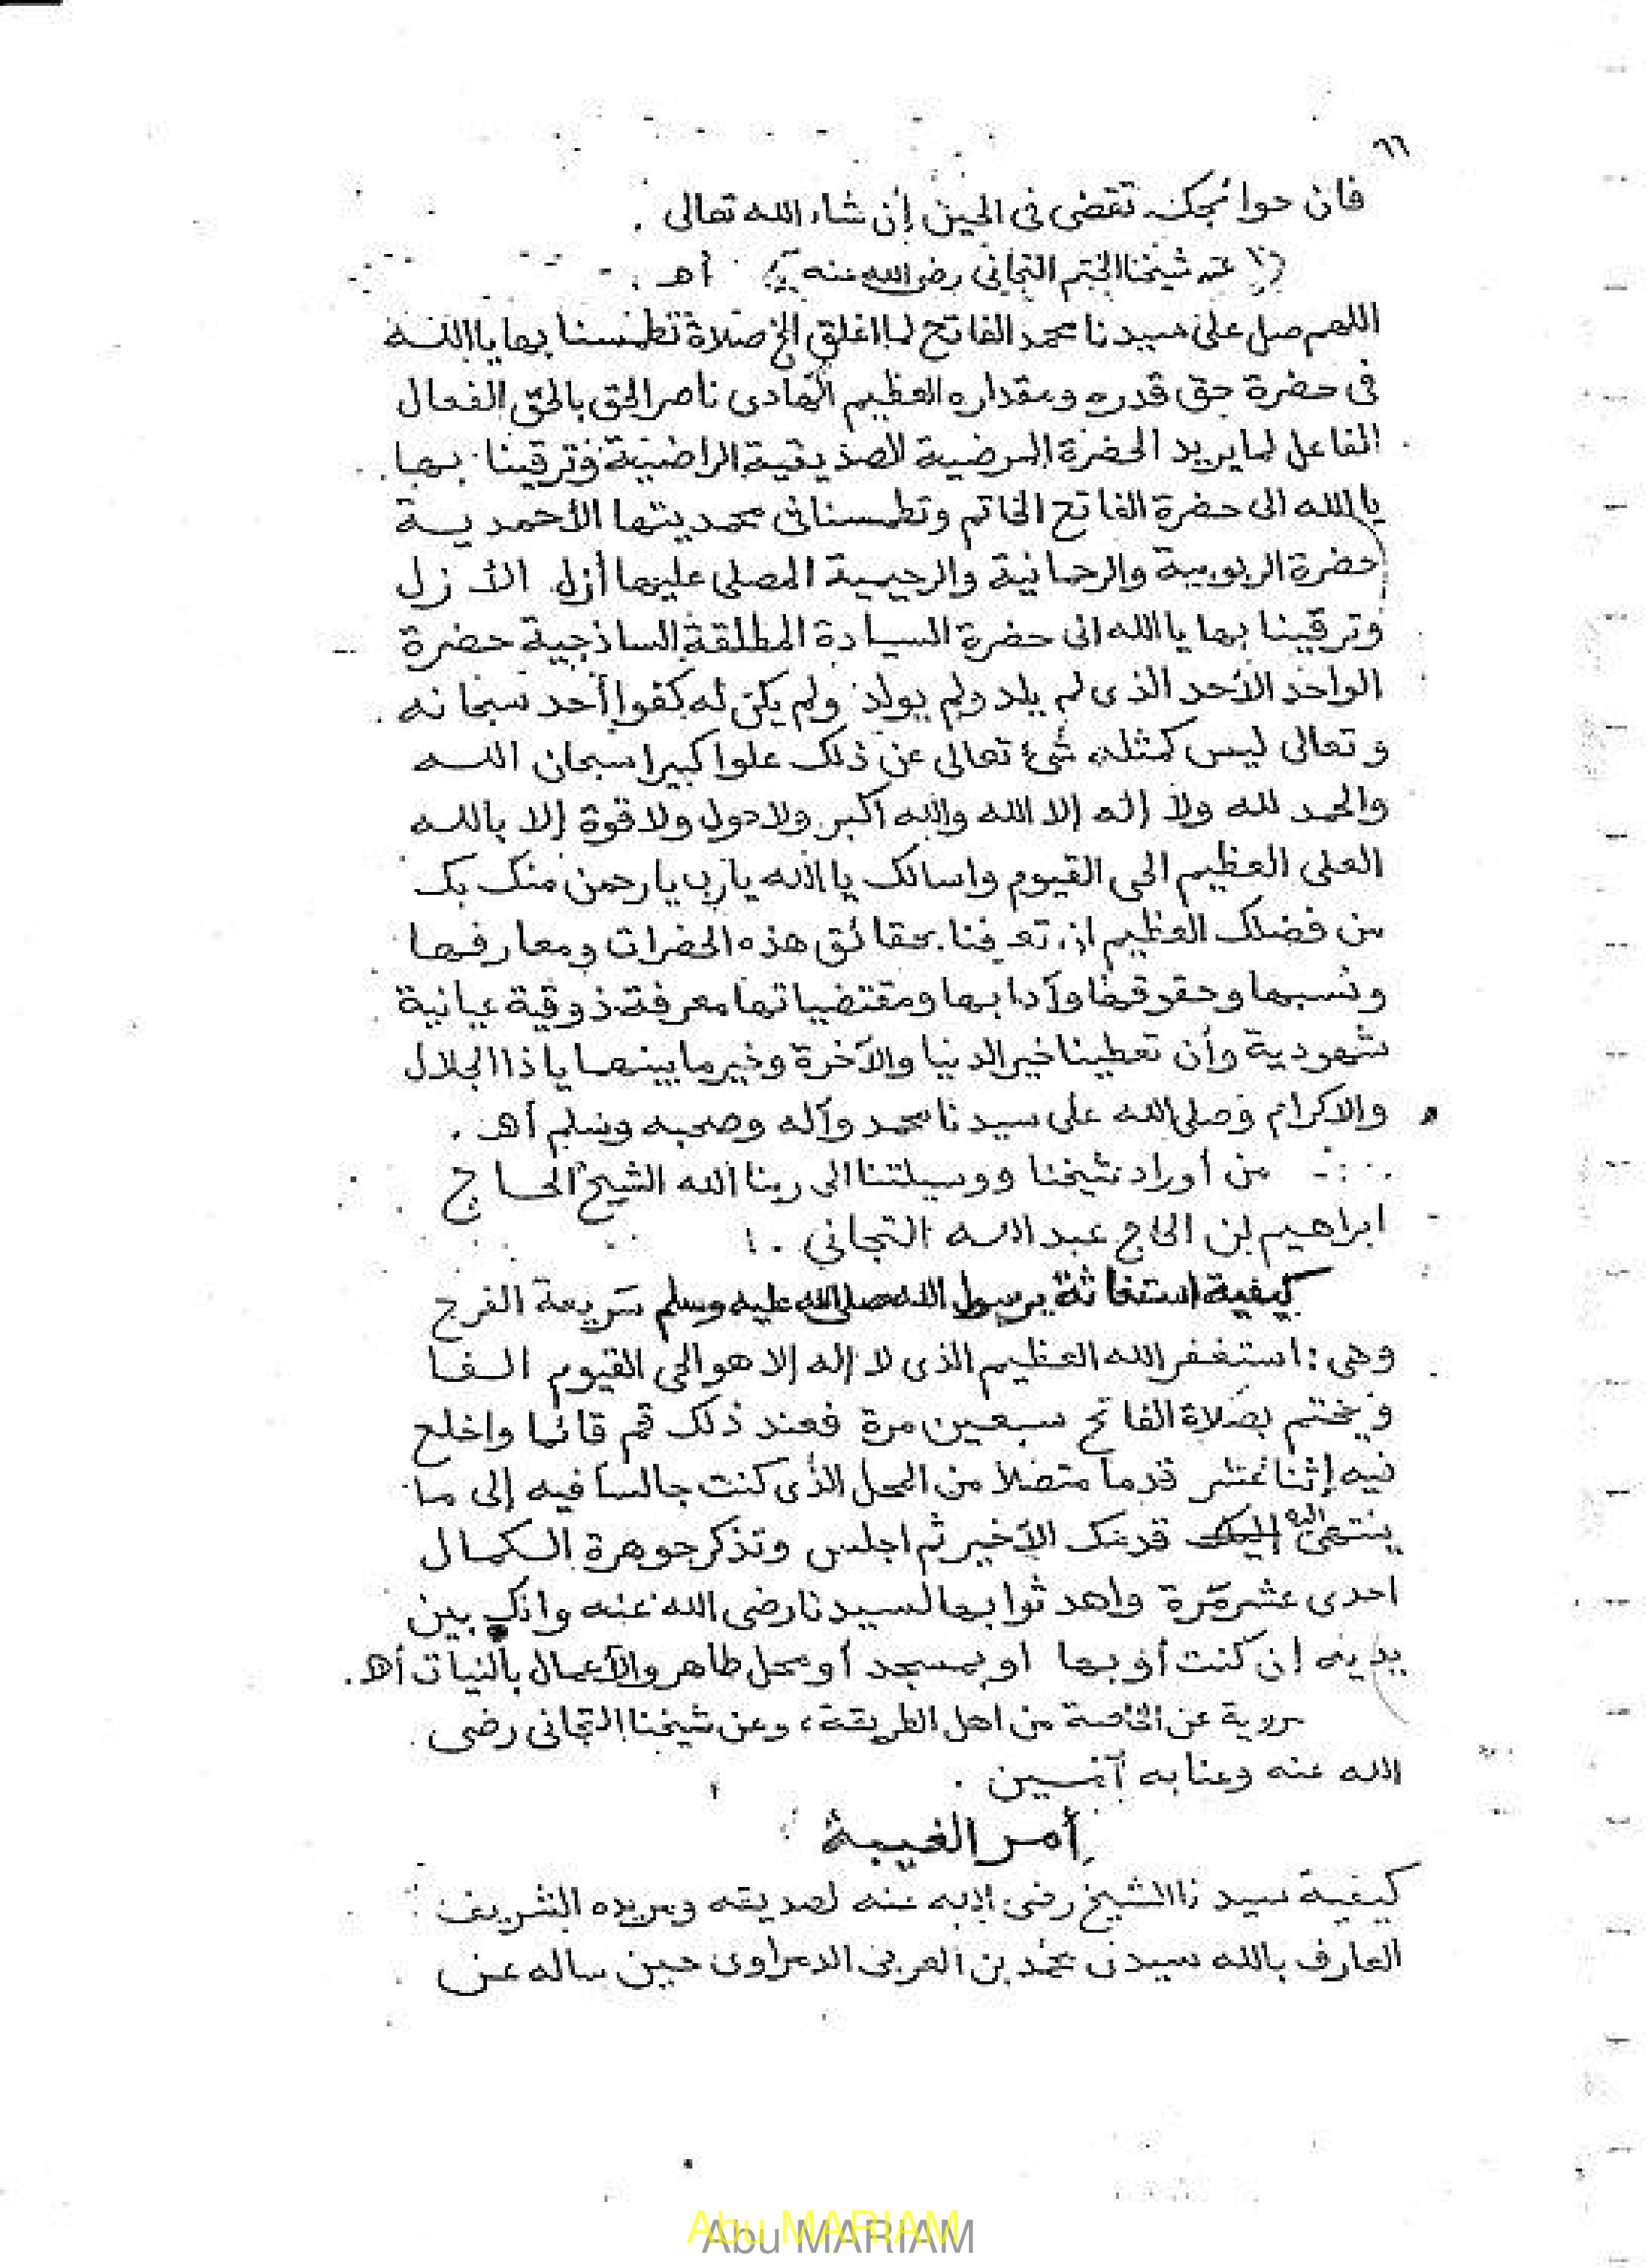 ٦٦
فان حوائجك تقضى فى الحين إن شاء الله تعالى .
(( عن شيخنا الختم التجانى رضى الله عنه )) أهـ .
اللهم صل على سيدنا محمد الفاتح لما اغلق الخ صلاة تطمسنا بها يا الله
فى حضرة حق قدره ومقداره العظيم الهادى ناصر الحق بالحق الفعال
الفاعل لما يريد الحضرة المرضية الصديقية الراضية وترقينا بها
يا الله الى حضرة الفاتح الخاتم وتطمسنا فى محمديتها الأحمدية
حضرة الربوبية والرحمانية والرحيمية المصلى عليها أزل الأزل
وترقينا بها يا الله الى حضرة السيادة المطلقة الساذجية حضرة
الواحد الأحد الذى لم يلد ولم يولد ولم يكن له كفوا أحد سبحانه
وتعالى ليس كمثله شئ تعالى عن ذلك علوا كبيرا سبحان الله
والحمد لله ولا إله إلا الله والله أكبر ولا حول ولا قوة إلا بالله
العلى العظيم الحى القيوم واسالك يا الله يا رب يا رحمن منك بك
من فضلك العظيم ان تعرفنا بحقائق هذه الحضرات ومعارفها
ونسبها وحقوقها وآدابها ومقتضياتها معرفة ذوقية عيانية
شهودية وأن تعطينا خير الدنيا والآخرة وخير ما بينهما يا ذا الجلال
والاكرام وصلى الله على سيدنا محمد وآله وصحبه وسلم أهـ .
من أوراد شيخنا ووسيلتنا الى ربنا الله الشيخ الحاج
ابراهيم بن الحاج عبد الله التجاني .
كيفية استغاثة برسول الله صلى الله عليه وسلم سريعة الفرج
وهى : استغفر الله العظيم الذى لا إله إلا هو الحى القيوم الفا
ويختم بصلاة الفاتح سبعين مرة فعند ذلك قم قائما واخلع
فيه إثنا عشر قدما متصلا من المحل الذى كنت جالسا فيه إلى ما
ينتهى إليه قدمك الأخير ثم اجلس وتذكر جوهرة الكمال
احدى عشر مرة واهد ثوابها لسيدنا رضى الله عنه وانك بين
يديه إن كنت أو بها او بمسجد أو محل طاهر والأعمال بالنيات أهـ .
مروية عن الخاصة من اهل الطريقة ، وعن شيخنا التجانى رضى
الله عنه وعنا به آمين .
أمر الغيبة
كيفية سيدنا الشيخ رضى الله عنه لصديقه ومريده الشريف
العارف بالله سيدى محمد بن العربى الدمراوى حين ساله عن
Abu MARIAM